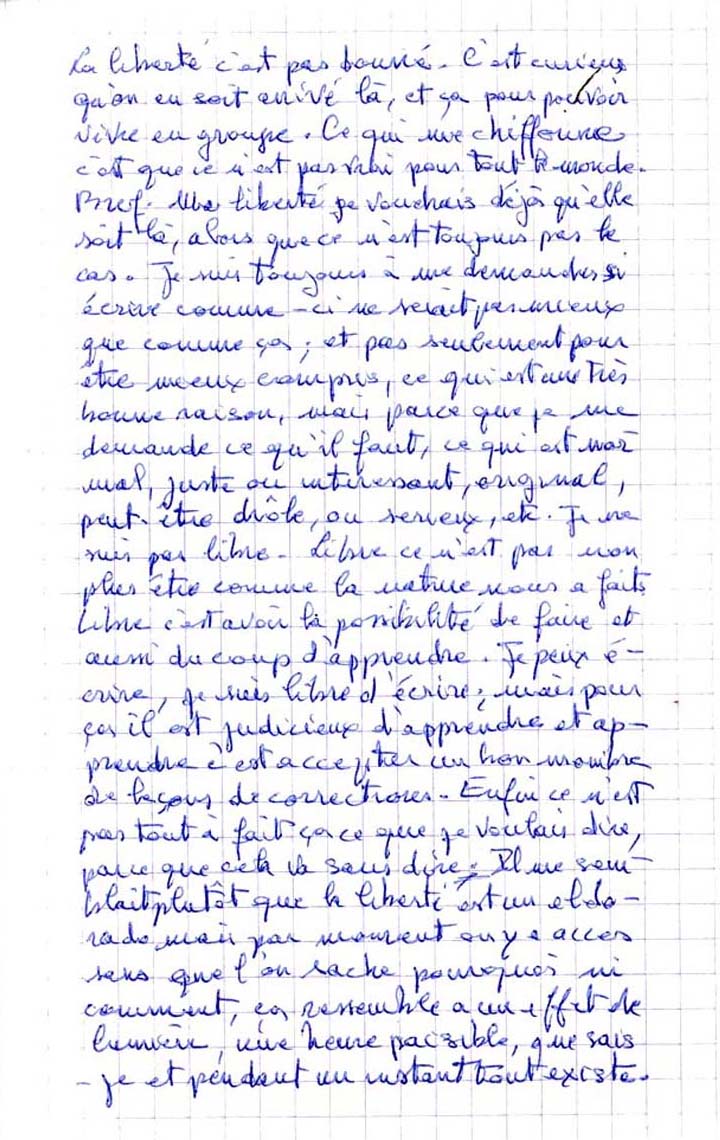 La liberté c'est pas bourré. C'est curieux
qu'on en soit arrivé là, et ça pour pouvoir
vivre en groupe. Ce qui me chiffonne
c'est que ce n'est pas vrai pour tout le monde.
Bref. Ma liberté je voudrais déjà qu'elle
soit là, alors que ce n'est toujours pas le
cas. Je suis toujours à me demander si
écrire comme-ci ne serait pas mieux
que comme ça; et pas seulement pour
être mieux compris, ce qui est une très
bonne raison, mais parce que je me
demande ce qu'il faut, ce qui est nor
mal, juste ou intéressant, original,
peut-être drôle, ou serieux, etc. Je ne
suis pas libre. Libre ce n'est pas non
plus être comme la nature nous a faits
Libre c'est avoir la possibilité de faire et
aussi du coup d'apprendre. Je peux é-
crire, je suis libre d'écrire; mais pour
ça il est judicieux d'apprendre et ap-
prendre c'est accepter un bon nombre
de leçons de corrections. Enfin ce n'est
pas tout à fait ça ce que je voulais dire,
parce que cela va sans dire. Il me sem-
blait plutôt que la liberté est un eldo-
rado mais par moment on y a acces
sans que l'on sache pourquoi ni
comment, ça ressemble a un effet de
lumière, une heure paisible, que sais
-je et pendant un instant tout existe.